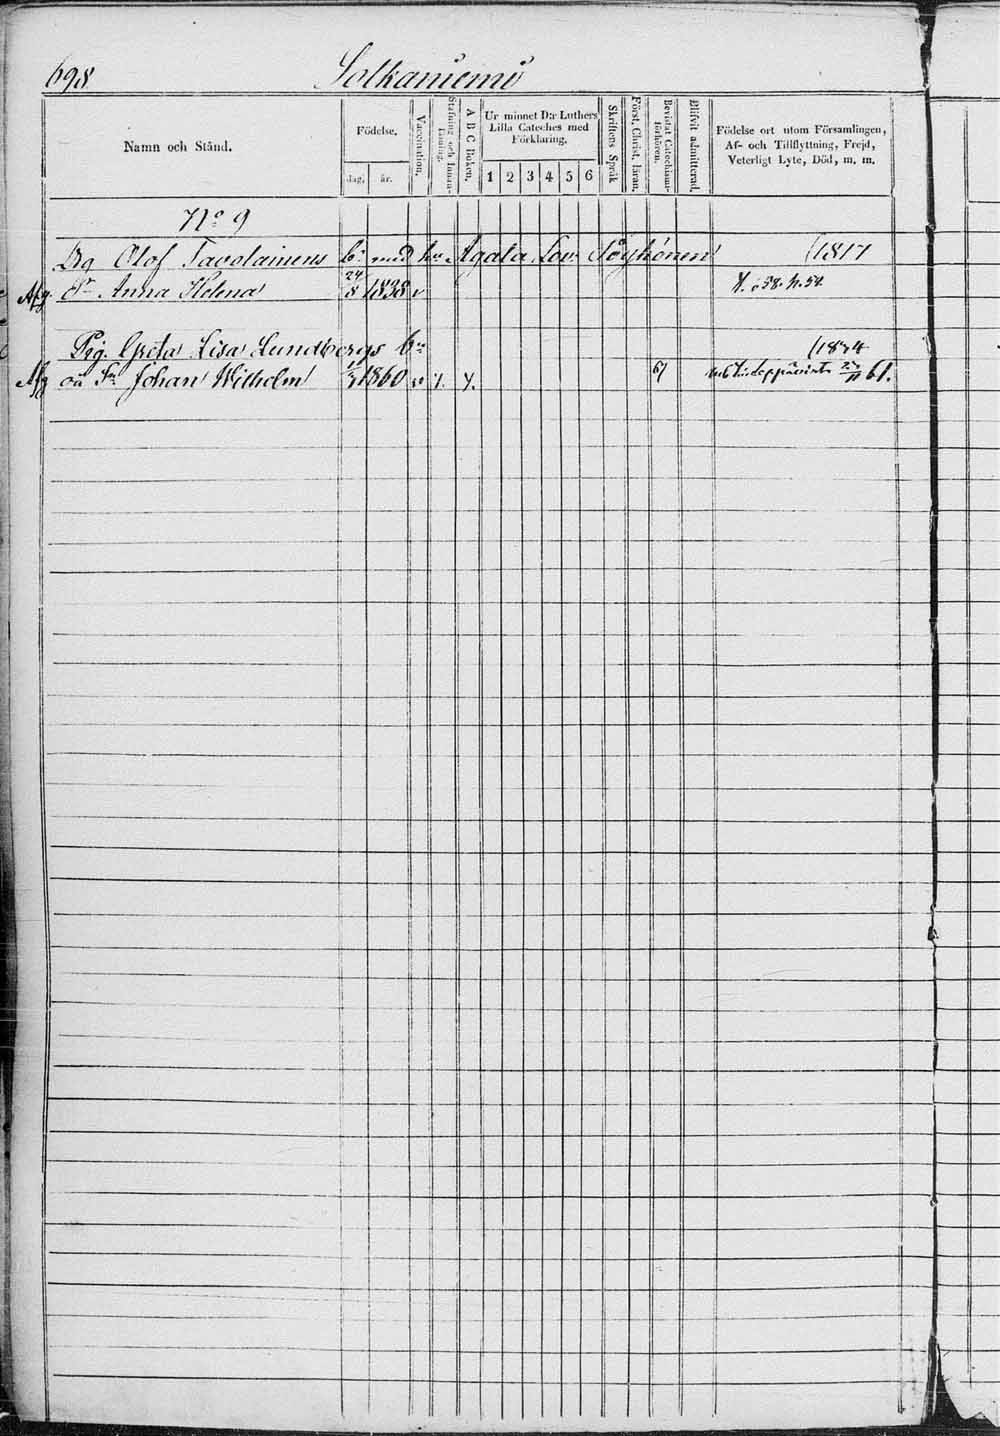 698 Solkaniemi
Namn och Stånd.
Födelse,
dag, år.
Vaccination.
Stafning och Innan-läsning.
A B C Boken.
Ur minnet D:r Luthers Lilla Cateches med Förklaring.
1 2 3 4 5 6
Skriftens Språk
Först. Christ. läran.
Bevistat Catechismi-förhören.
Blifvit admitterad.
Födelse ort utom Församlingen,
Af- och Tillflyttning, Frejd,
Veterligt Lyte, Död, m. m.
No 9
Olof Tavolainens med Agata Löyhönen (1817
Afg. Dr Anna Helena 24/8 1838 v
Pig. Greta Lisa Lundbergs (1834
Afg oä Sn Johan Wilhelm 1860 v 61 61.